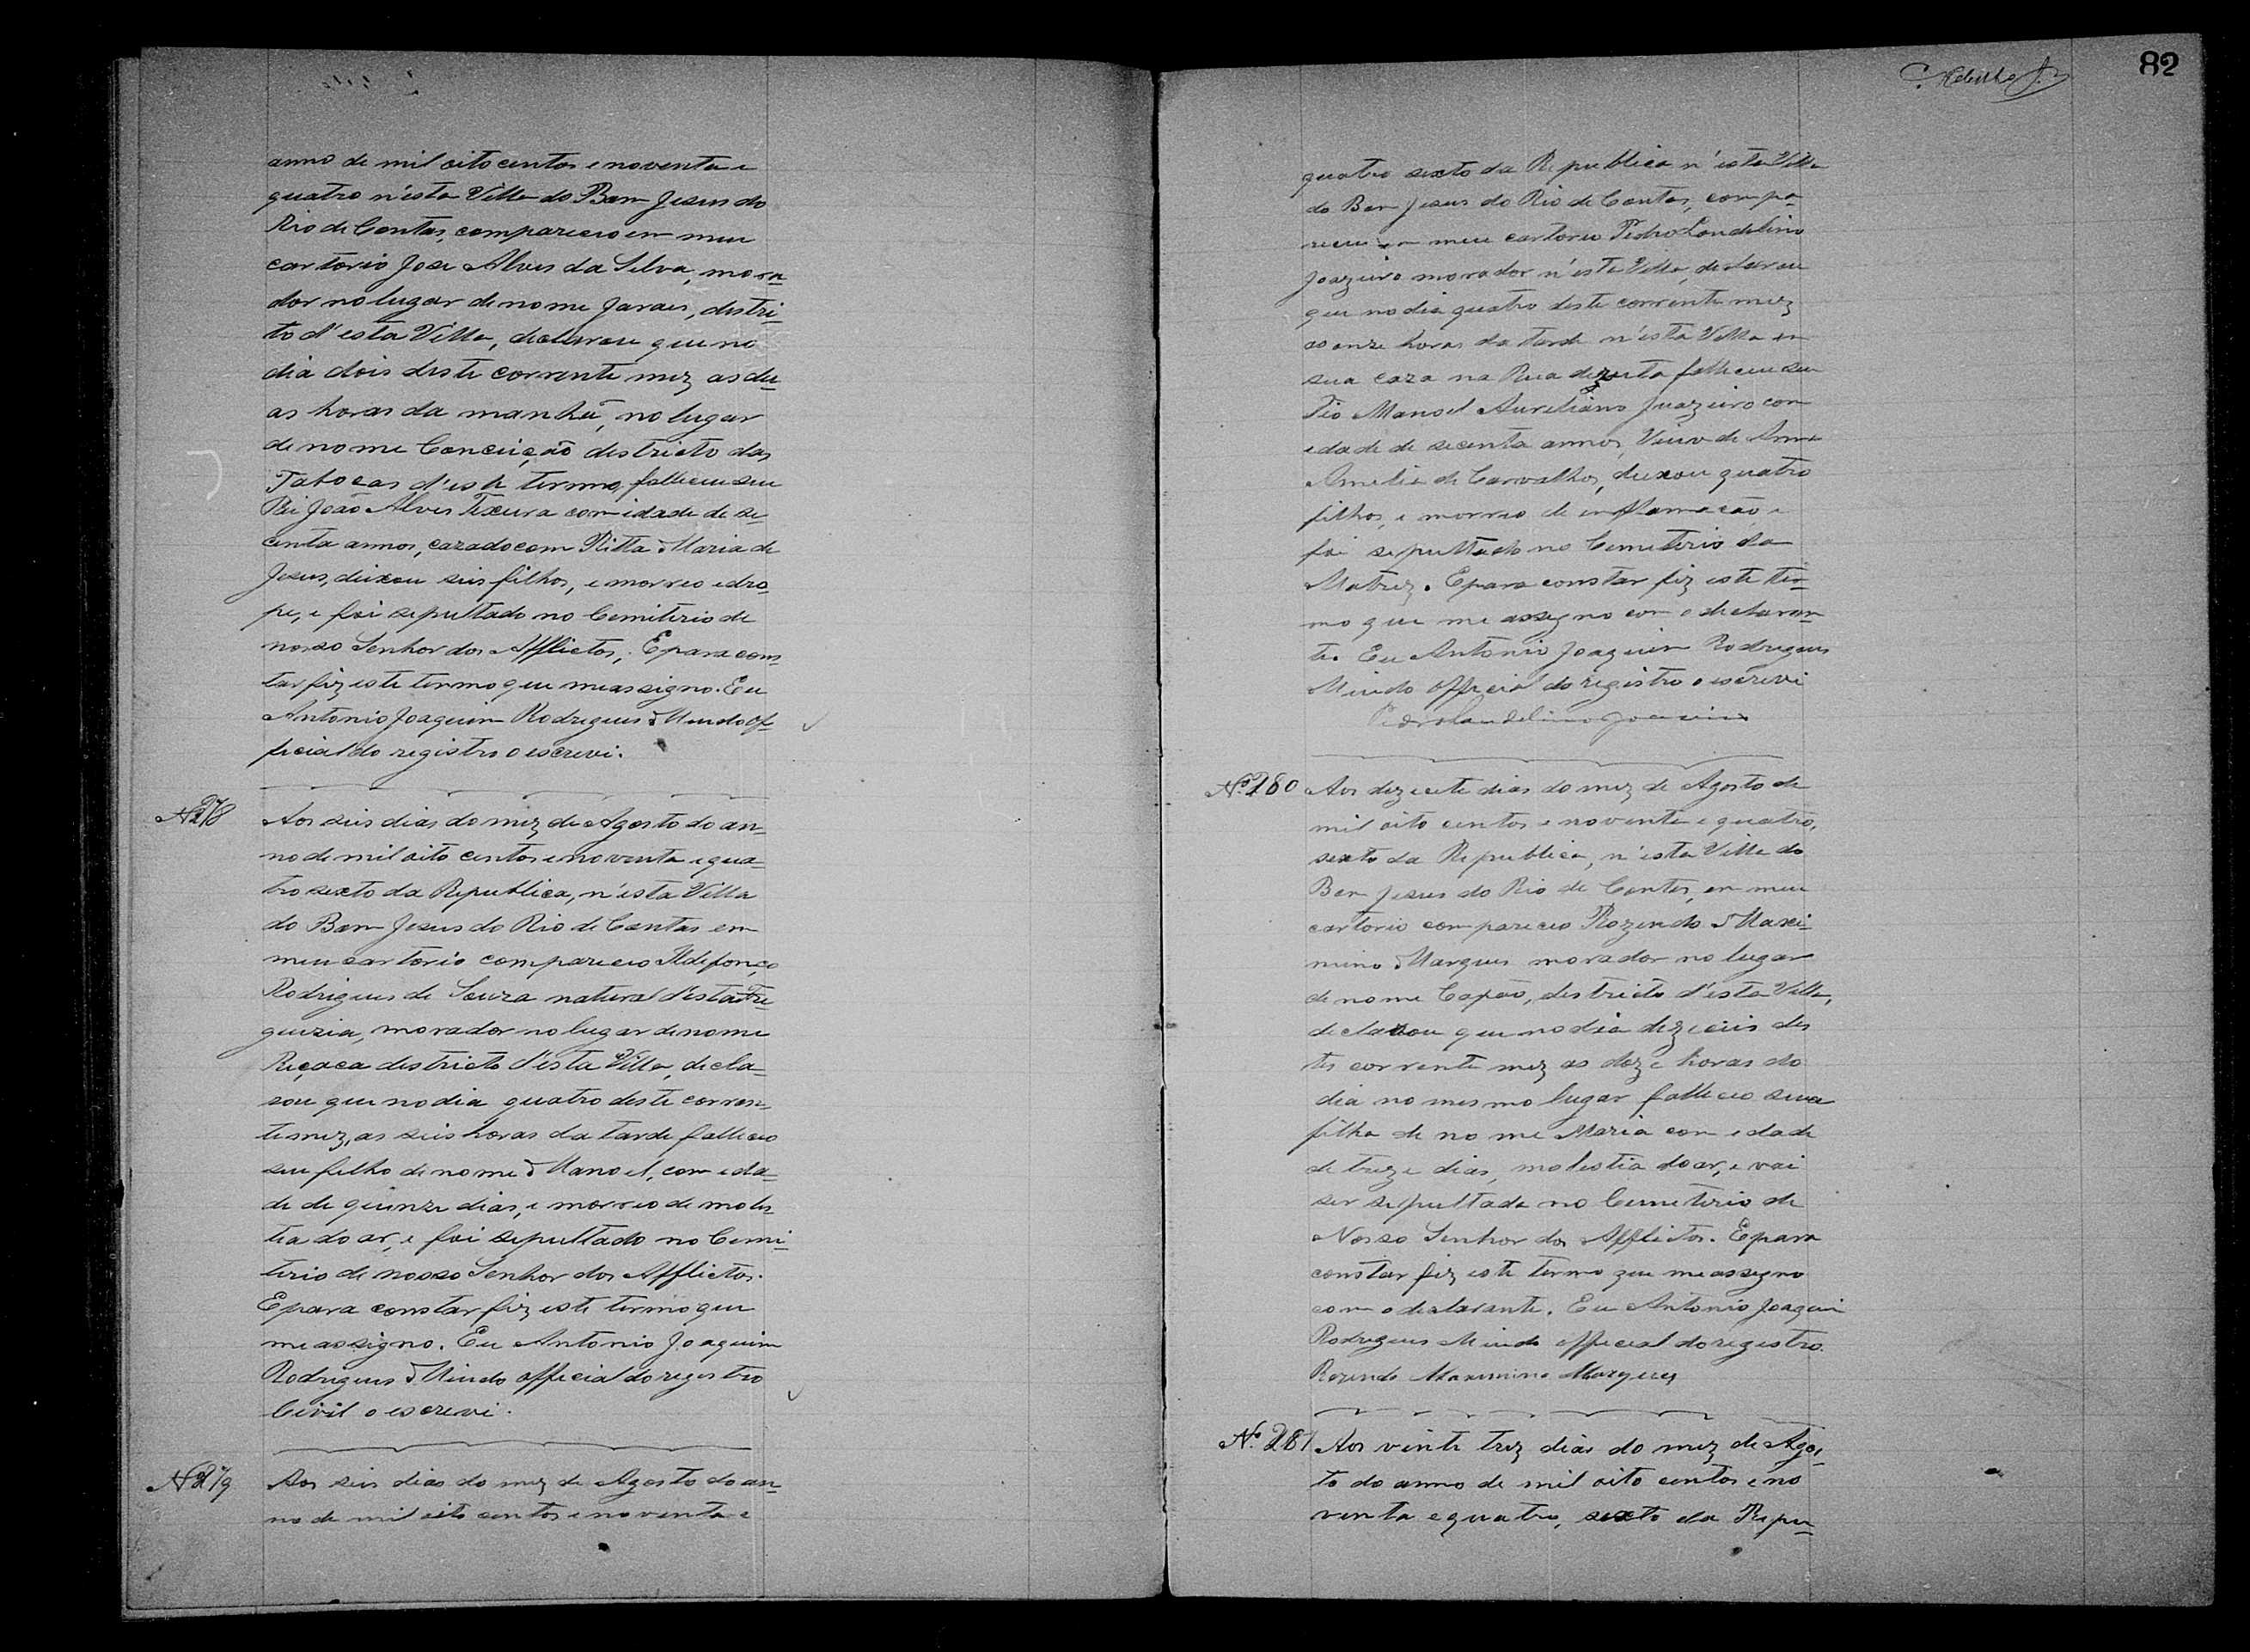 82
anno de mil oito centos e noventa e
quatro n'esta Villa do Bom Jesus do
Rio de Contas, compareceo em meu
cartorio Jose Alves da Silva, mora-
dor no lugar de nome Javaes, distri-
to d'esta Villa, declarou que no
dia dois deste corrente mez as du-
as horas da manhã, no lugar
de nome Conceição districto das
Tabocas d'este termo, falleceu seu
Pai João Alves Texeira com idade de se-
centa annos, cazado com Ritta Maria de
Jesus, deixou seis filhos, e morreo edro-
pe, e foi sepultado no Cemiterio de
nosso Senhor dos Afflictos, E para cons-
tar fiz este termo que me assigno. Eu
Antonio Joaquim Rodrigues Mendo of-
ficial do registro o escrevi.
Nº 278
Aos seis dias do mez de Agosto do an-
no de mil oito centos e noventa e qua-
tro sexto da Republica, n'esta Villa
do Bom Jesus do Rio de Contas em
meu cartorio compareceo Ildefonço
Rodrigues de Souza natural d'esta Fre
guezia, morador no lugar de nome
Reçaca districto d'esta Villa, decla-
rou que no dia quatro deste corren-
te mez, as seis horas da tarde falleceo
seu filho de nome Manoel, com eda-
de de quinze dias, e morreo de moles-
tia do ar, e foi sepultado no Cemi-
terio de nosso Senhor dos Afflictos.
E para constar fiz este termo que
me assigno. Eu Antonio Joaquim
Rodrigues Mendo official do registro
Civil o escrevi.
Nº 279
Aos seis dias do mez de Agosto do an-
no de mil oito centos e noventa e
quatro sexto da Republica n'esta Villa
do Bom Jesus do Rio de Contas, compa-
receu em meu cartorio Pedro Landelino
Joazeiro morador n'esta Villa, declarou
que no dia quatro deste corrente mez
as onze horas da tarde n'esta Villa em
sua caza na Rua falleceu seu
Tio Manoel Aureliano Juazeiro com
edade de secenta annos, Viuvo de Anna
Amelia de Carvalho, deixou quatro
filhos, e morreo de inflamação e
foi sepultado no Cemiterio da
Matriz. E para constar fiz este ter-
mo que me assegno com o declaran-
te. Eu Antonio Joaquim Rodrigues
Mendo official do registro o escrevi
Pedro Landelino Joazeiro
Nº 280
Aos dezecete dias do mez de Agosto de
mil oito centos e noventa e quatro,
sexto da Republica, n'esta Villa do
Bom Jesus do Rio de Contas, em meu
cartorio compareceo Rozendo Maxi-
mino Marques morador no lugar
de nome Capão, districto d'esta Villa,
declarou que no dia dezeceis des
te corrente mez as doze horas do
dia no mesmo lugar falleceo sua
filha de nome Maria com edade
de treze dias, molestia do ar, e vai
ser sepultada no Cemeterio de
Nosso Senhor dos Afflictos. E para
constar fiz este termo que me assegno
com o declarante. Eu Antonio Joaquim
Rodrigues Mendo official do registro.
Rozendo Maximino Marques
Nº 281
Aos vinte trez dias do mez de Agos-
to do anno de mil oito centos e no
venta e quatro, sexto da Repu-